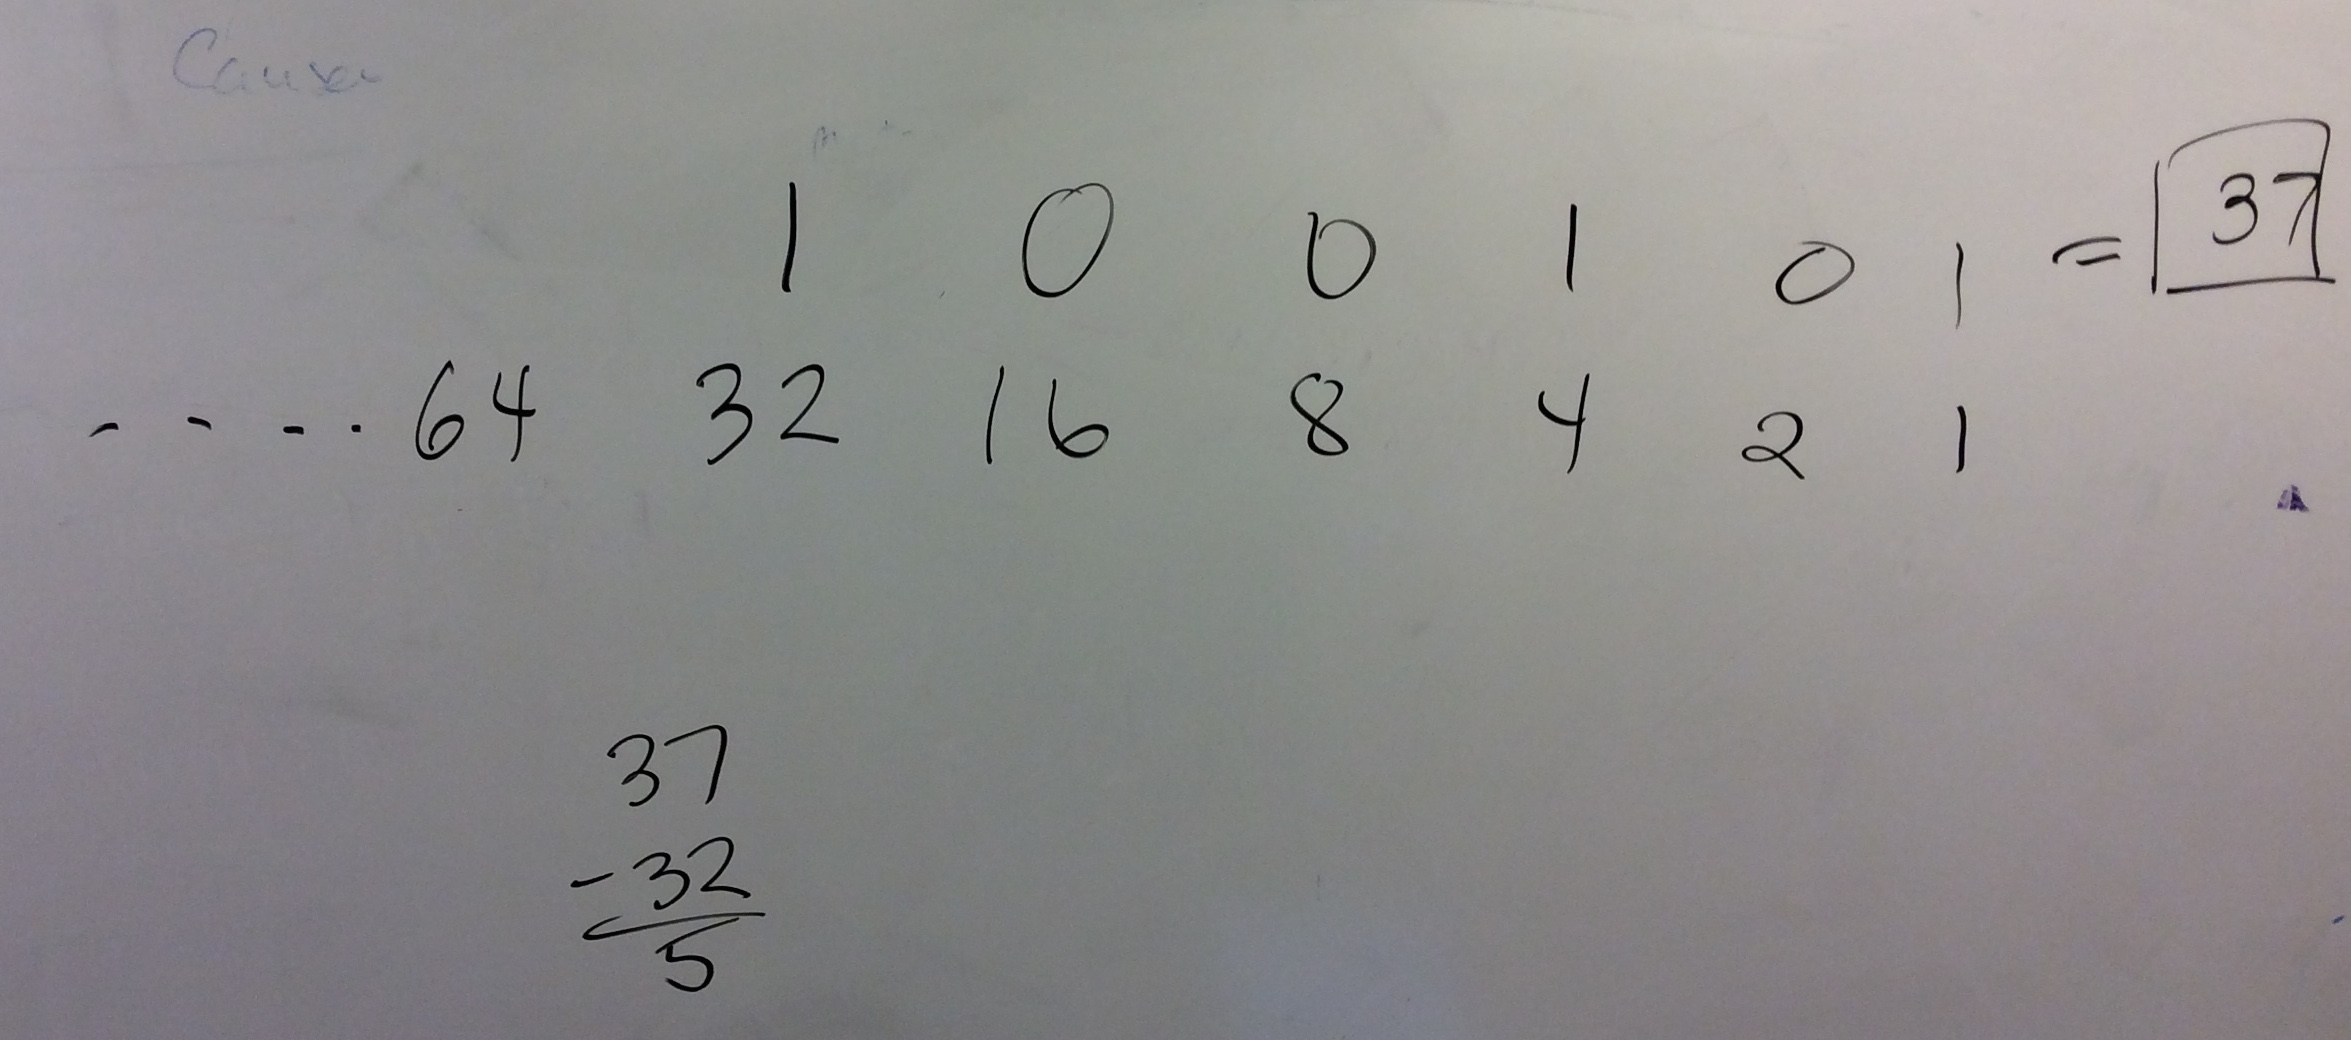 1 0 0 1 0 1 = 37
- - - . 64 32 16 8 4 2 1
37
-32
5